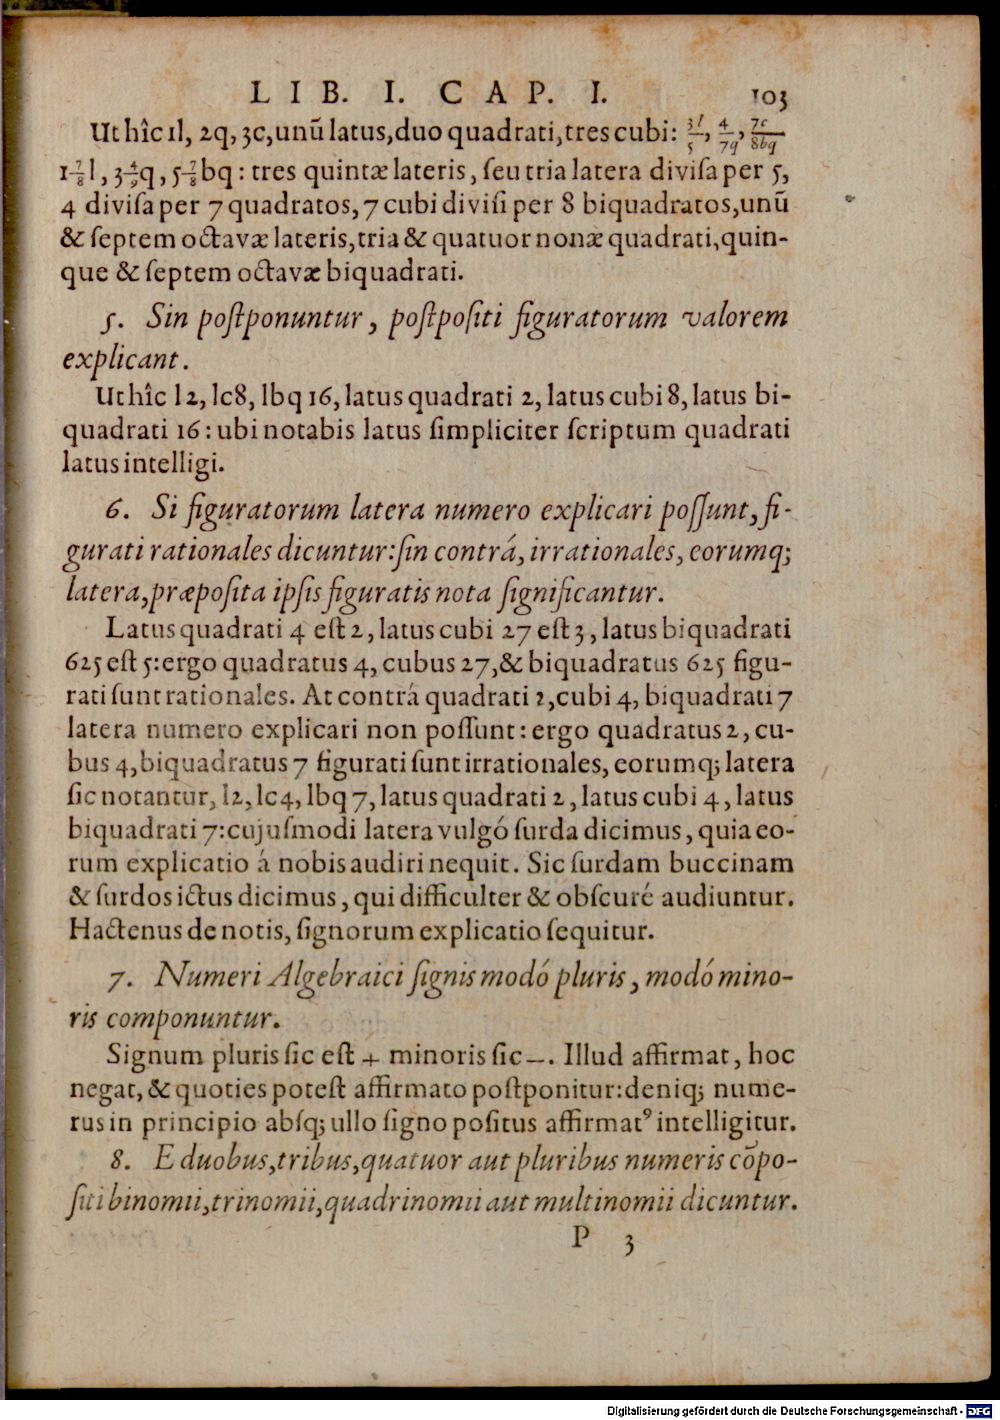 LIB. I. CAP. I. 103
Ut hîc 1l, 2q, 3c, unũ latus, duo quadrati, tres cubi: 3l/5, 4/7q, 7c/8bq
1 7/8 l, 3 4/9 q, 5 7/8 bq: tres quintæ lateris, ſeu tria latera diviſa per 5,
4 diviſa per 7 quadratos, 7 cubi diviſi per 8 biquadratos, unũ
& ſeptem octavæ lateris, tria & quatuor nonæ quadrati, quin-
que & ſeptem octavæ biquadrati.
5. Sin poſtponuntur, poſtpoſiti figuratorum valorem
explicant.
Ut hîc l 2, lc8, lbq 16, latus quadrati 2, latus cubi 8, latus bi-
quadrati 16: ubi notabis latus ſimpliciter ſcriptum quadrati
latus intelligi.
6. Si figuratorum latera numero explicari poſſunt, fi-
gurati rationales dicuntur: ſin contrá, irrationales, eorumq;
latera, præpoſita ipſis figuratis nota ſignificantur.
Latus quadrati 4 eſt 2, latus cubi 27 eſt 3, latus biquadrati
625 eſt 5: ergo quadratus 4, cubus 27, & biquadratus 625 figu-
rati ſunt rationales. At contrá quadrati 2, cubi 4, biquadrati 7
latera numero explicari non poſſunt: ergo quadratus 2, cu-
bus 4, biquadratus 7 figurati ſunt irrationales, eorumq; latera
ſic notantur, l2, lc4, lbq 7, latus quadrati 2, latus cubi 4, latus
biquadrati 7: cujuſmodi latera vulgó ſurda dicimus, quia eo-
rum explicatio á nobis audiri nequit. Sic ſurdam buccinam
& ſurdos ictus dicimus, qui difficulter & obſcuré audiuntur.
Hactenus de notis, ſignorum explicatio ſequitur.
7. Numeri Algebraici ſignis modó pluris, modó mino-
ris componuntur.
Signum pluris ſic eſt + minoris ſic −. Illud affirmat, hoc
negat, & quoties poteſt affirmato poſtponitur: deniq; nume-
rus in principio abſq; ullo ſigno poſitus affirmatꝰ intelligitur.
8. E duobus, tribus, quatuor aut pluribus numeris cõpo-
ſiti binomii, trinomii, quadrinomii aut multinomii dicuntur.
P 3
Digitalisierung gefördert durch die Deutsche Forschungsgemeinschaft - DFG